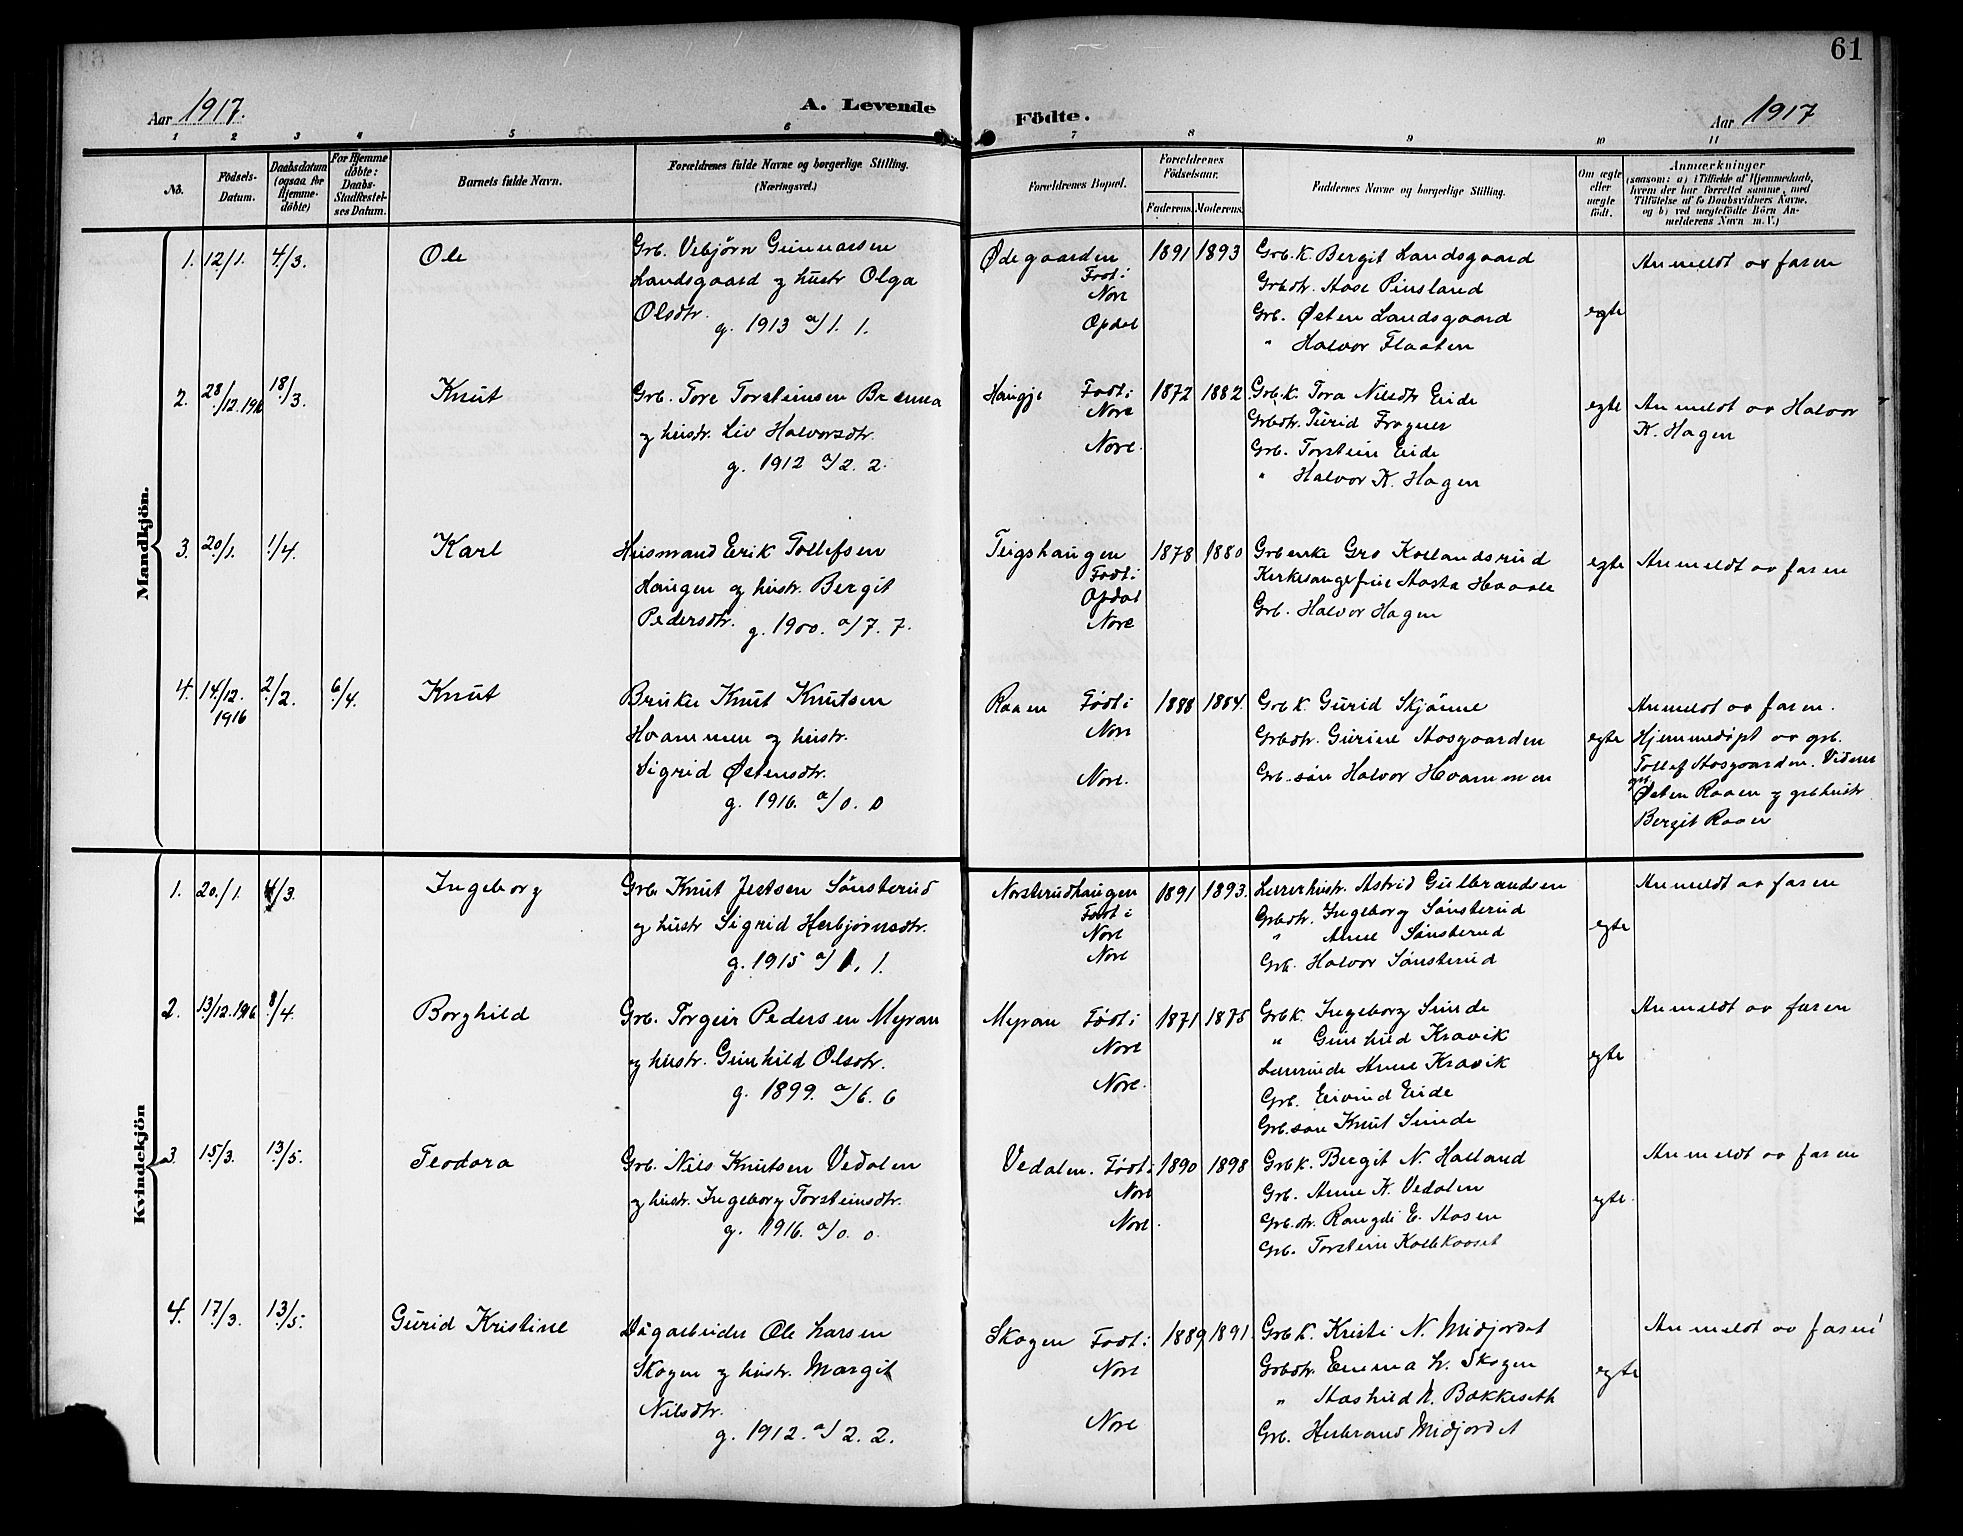 61
Aar 1917.
A. Levende
Födte.
Aar 1917
1 2 3 4 5 6 7 8 9 10 11
No.
Födsels-Datum.
Daabsdatum (ogsaa for Hjemme-döbte)
For Hjemme döbte: Daabs-Stadfæstel-ses Datum.
Barnets fulde Navn.
Forældrenes fulde Navne og borgerlige Stilling. (Næringsvei.)
Forældrenes Bopæl.
Forældrenes Födselsaar.
Faderens. Moderens.
Faddernes Navne og borgerlige Stilling.
Om ægte eller uægte födt.
Anmærkninger
(saasom: a) i Tilfælde af Hjemmedaab,
hvem der har forrettet samme, med
Tilföielse af to Daabsvidners Navne,
og b) ved uægtefödte Börn An-
melderens Navn m. V.)
Mandkjön.
1. 12/1. 4/3. Ole
Grb. Vebjörn Gunnarsen
Landsgaard og hustr Olga
Olsdtr.
g. 1913 a/1. 1.
Ødegaarden
Født i
Nore
Opdal
1891 1893
Grb.k. Bergit Landsgaard
Grbdtr. Aase Pinsland
Grb. Østen Landsgaard
" Halvor Flaaten
egte
Anmeldt av faren
2. 28/12. 1916 18/3. Knut
Grb. Tore Torsteinsen
og hustr. Liv Halvorsdtr.
g. 1912 a/2. 2.
Haugje Født i
Nore
Nore.
1872 1882
Grb.k. Tora Nilsdtr Eide
Grbdtr. Turid Frogner
Grb. Torstein Eide
" Halvor K. Hagen
egte
Anmeldt av Halvor
K. Hagen
3. 20/1. 1/4. Karl
Husmand Erik Tollefsen
Haugen og hustr. Bergit
Pedersdtr. g. 1900. a/7. 7.
Teigshaugen
Født i
Opdal
Nore
1878 1880
Grbenke Gro Kollandsrud
Kirkesangefrue Aasta Haavle
Grb. Halvor Hagen
egte
Anmeldt av faren
4. 14/12. 1916 2/2. 6/4. Knut
Bruker Knut Knutsen
Hvammen og hustr.
Sigrid Østensdtr.
g. 1916. a/0. 0
Raaen Født i
Nore
Nore.
1888 1884.
Grb k. Gurid Skjönne
Grbdtr. Gurine Aasgaarden
Grb. sön Halvor Hvammen
egte
Anmeldt av faren.
Hjemmedöpt av grb.
Tollef Aasgaarden. Vidner
grb. Østen Raaen og grbhustr
Bergit Raaen
Kvindekjön
1. 20./1. 4/3. Ingeborg
Grb Knut Jestsen Sönsterud
og hustr Sigrid Herbjörnsdtr.
g. 1915 a/1. 1.
Norsterudhaugen
Født i
Nore
Nore
1891 1893.
Lærerhustr. Astrid Gulbrandsen
Grbdtr. Ingeborg Sönsterud
" Anne Sönsterud
Grb. Halvor Sönsterud
egte
Anmeldt av faren
2. 13/12. 1916 8/4. Borghild
Grb. Torgeir Pedersen Myran
og hustr. Gunhild Olsdtr.
g. 1899. a/6. 6
Myran Født i
Nore
Nore.
1871 1875
Grb k. Ingeborg Simde
" Gunhild Kravik
Lærerinde Anne Kravik
Grb. Eivind Eide
Grb. sön Knut Simde
egte
Anmeldt av faren
3. 15/3. 13/5. Teodora
Grb. Nils Knutsen Vedalen
og hustr. Ingeborg Torsteinsdtr.
g. 1916. a/0. 0.
Vedalen. Født i
Nore
Nore.
1890 1898
Grb k. Bergit N. Halland
Grb. Anne K. Vedalen
Grb.dtr. Rangdi E. Aasen
Grb. Torstein Kollekaaset
egte.
Anmeldt av faren
4. 17/3. 13/5. Gurid Kristine
Dagarbeider Ole Larsen
Skogen og hustr. Margit
Nilsdtr.
g. 1912. a/2. 2.
Skogen Født i
Nore
Nore
1889 1891.
Grb k. Kristi N. Midjordet
Grbdtr. Emma L. Skogen
" Aashild N. Bakkeseth
Grb. Herbrand Midjordet
egte
Anmeldt av faren